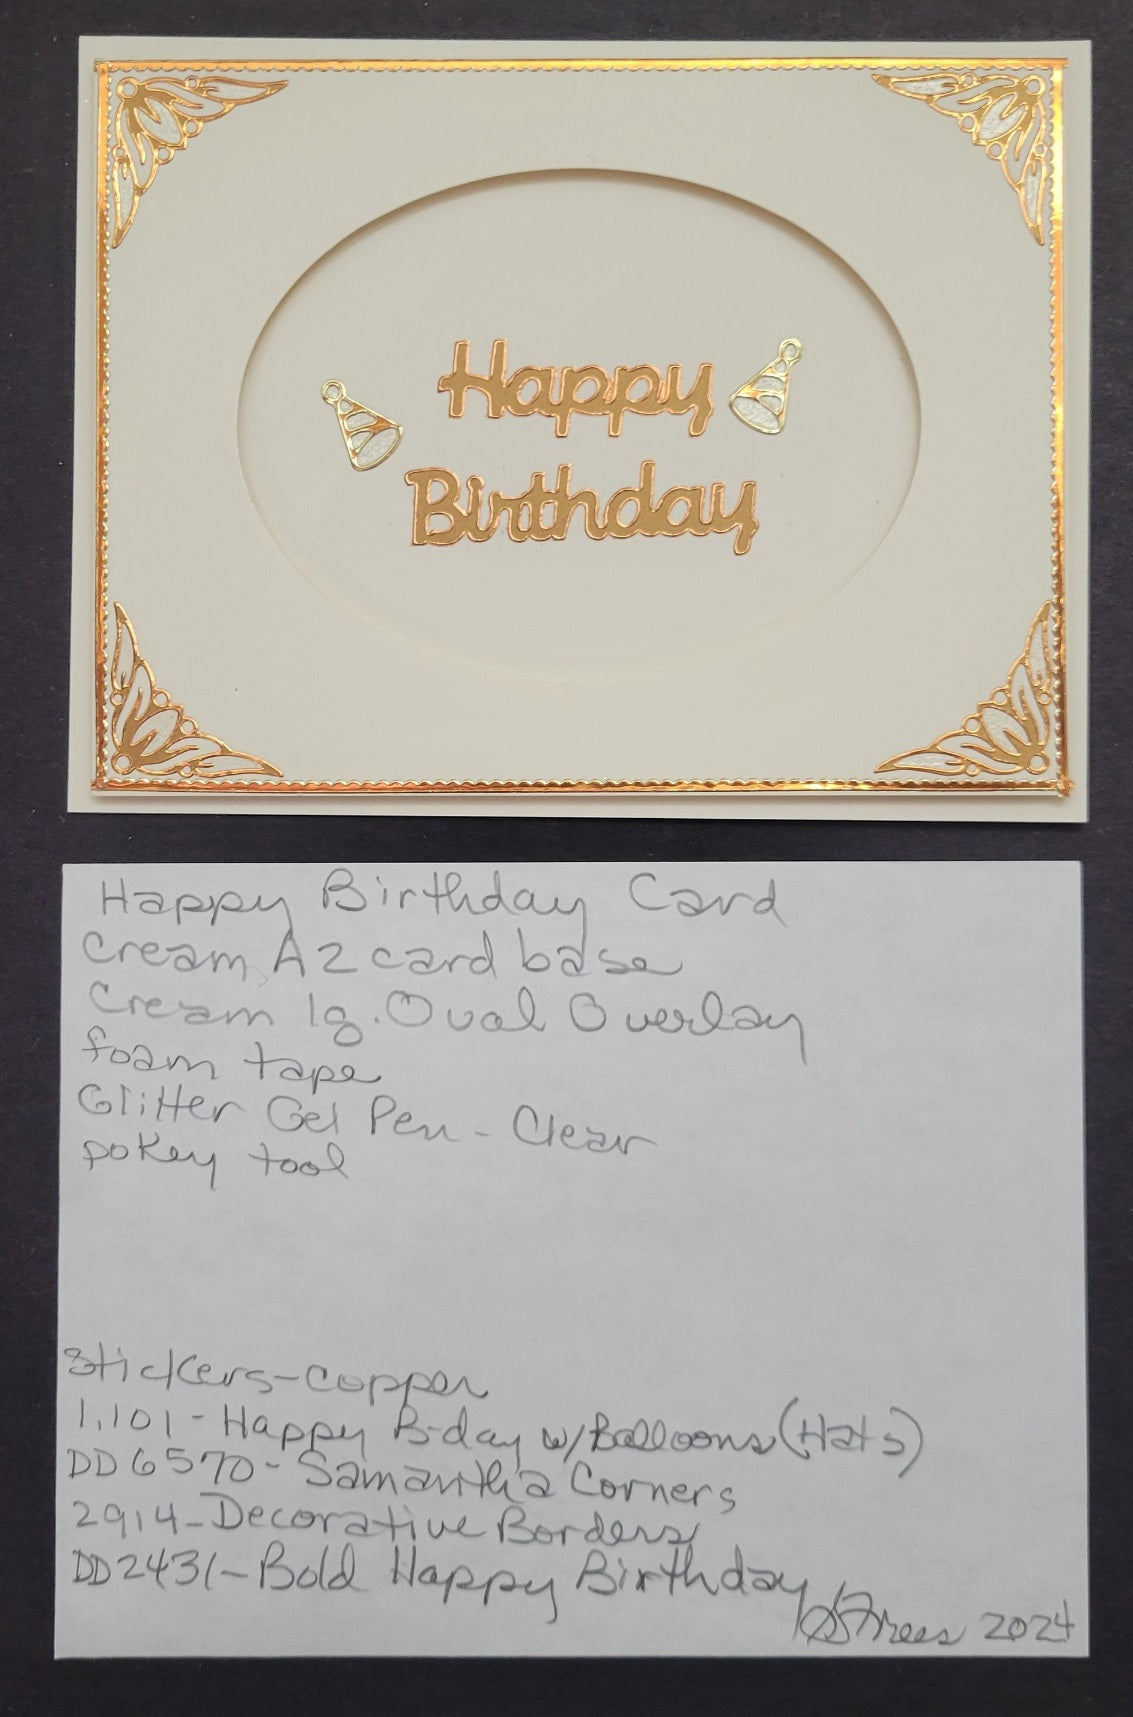 Happy
Birthday
Happy Birthday Card
Cream A2 card base
Cream lg. Oval Overlay
foam tape
Glitter Gel Pen - Clear
pokey tool
Stickers-copper
1.101 - Happy B-day w/Balloons (Hats)
DD6570 - Samantha Corners
2914 - Decorative Borders
DD2431 - Bold Happy Birthday
2024